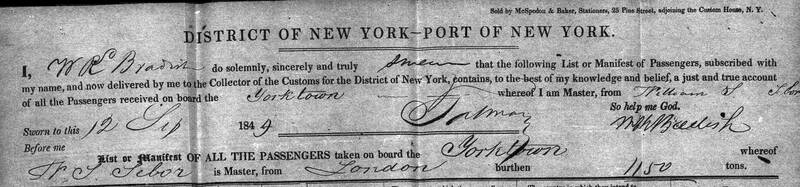 Sold by McSpedon & Baker, Stationers, 25 Pine Street, adjoining the Custom House, N. Y.
DISTRICT OF NEW YORK—PORT OF NEW YORK.
I, W R Bradish do solemnly, sincerely and truly swear that the following List or Manifest of Passengers, subscribed with
my name, and now delivered by me to the Collector of the Customs for the District of New York, contains, to the best of my knowledge and belief, a just and true account
of all the Passengers received on board the Yorktown whereof I am Master, from William S Sebor
Sworn to this 12 Sep 1849 So help me God.
Before me W R Bradish
List or Manifest OF ALL THE PASSENGERS taken on board the Yorktown whereof
W. S. Sebor is Master, from London burthen 1150 tons.